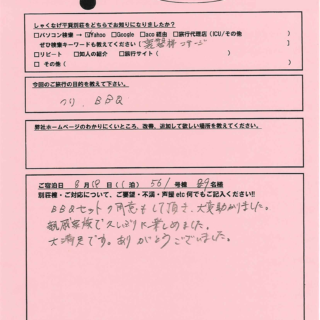 しゃくなげ平貸別荘をどちらでお知りになりましたか?
□パソコン検索 → ☑Yahoo □Google □aco 経由 □旅行代理店(ICU/その他 )
ぜひ検索キーワードも教えてください(
□リピート □知人の紹介 □旅行サイト( )
□ その他( )
今回のご旅行の目的を教えて下さい。
BBQ
弊社ホームページのわかりにくいところ、改善、追加して欲しい場所を教えてください。
ご宿泊日 8月18日(1泊) 501号棟 名様
別荘種・ご対応について、ご要望・不満・声援etc何でもご記入ください!!
BBQセットの用意もして頂き、大変助かりました。
親戚家族で久しぶりに楽しめました。
大満足です。ありがとうございました。